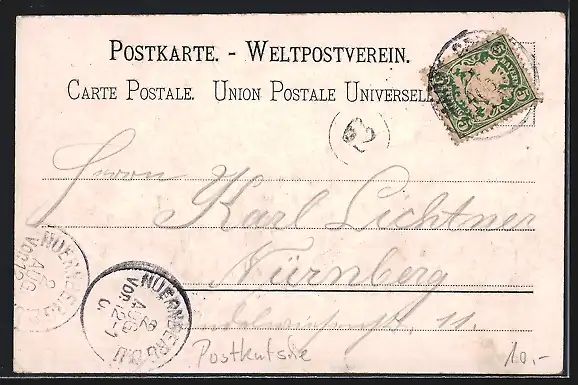 POSTKARTE. - WELTPOSTVEREIN.
CARTE POSTALE. UNION POSTALE UNIVERSELLE
5 BAYERN 5
Herrn Karl Lichtner
Nürnberg
11.
NUERNBERG
2 AUG
Vor.
NUERNBERG
2 AUG
Vor.
Postkutsche
10,-